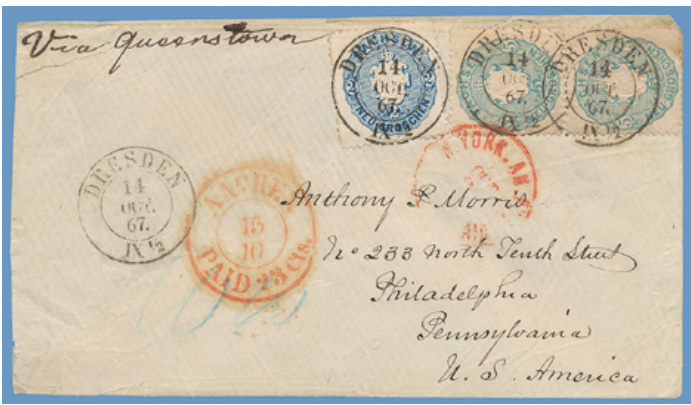 Via Queenstown
DRESDEN
14
OCT.
67.
IX ½
NEUGROSCHEN
DRESDEN
14
OCT.
67.
IX ½
DRESDEN
14
OCT.
67.
IX ½
DRESDEN
14
OCT.
67.
IX ½
AACHEN
15
10
PAID 23 Cts.
N. YORK. AM.
Anthony P Morris
No 233 North Tenth Street
Philadelphia
Pennsylvania
U. S. America